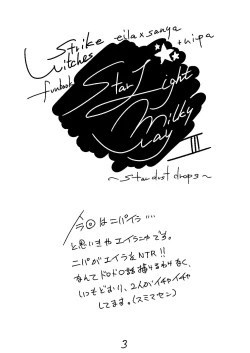 Strike
Witches
eila×sanya
+nipa
funbook
Star Light
Milky
Way
III
～Stardust drops～
今回はニパイラ…
と思いきやエイラニャです。
ニパがエイラをNTR!!
なんてドロドロ話描けるわけなく、
いつもどおり、2人がイチャイチャ
してます。(スミマセン)
3